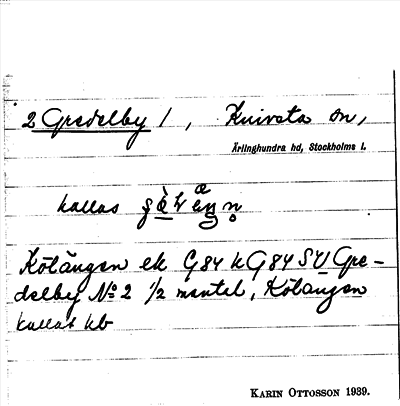 2 Gredelby 1, Knivsta sn,
Ärlinghundra hd, Stockholms l.
kallas
Kölängen ek G 84 k G 84 SU Gre-
delby No 2 1/2 mantal, Kölängen
kallat kb
KARIN OTTOSSON 1939.